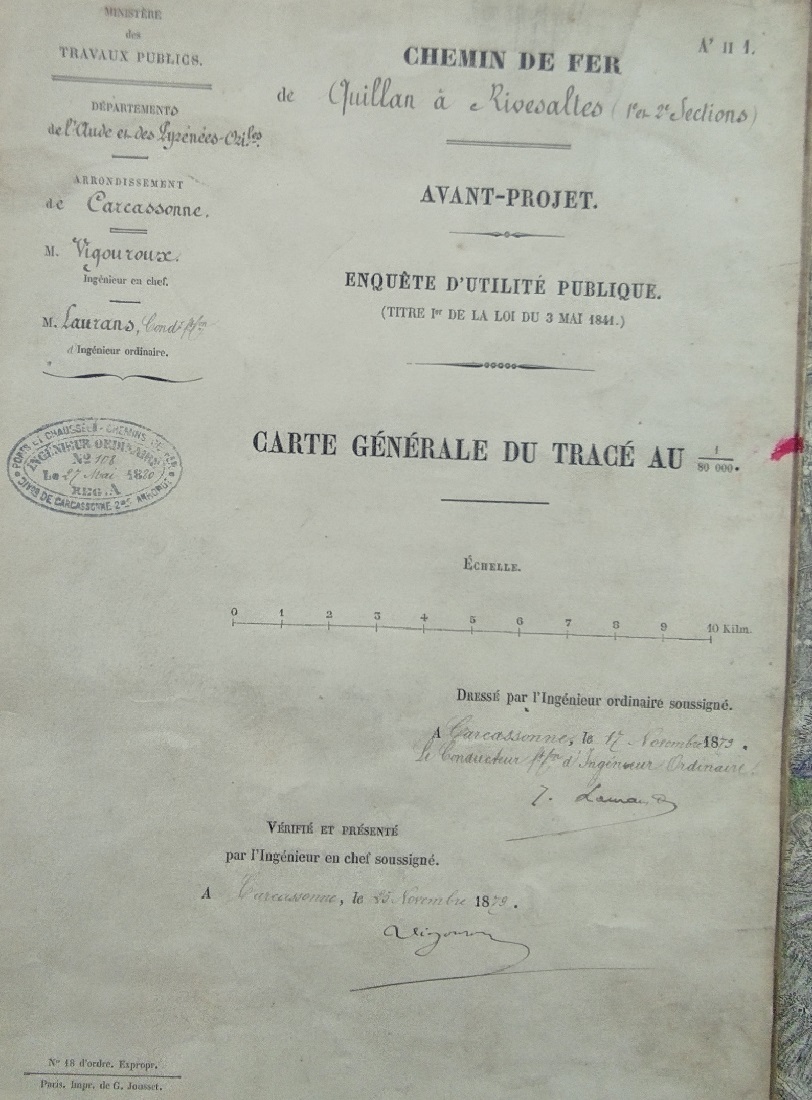 MINISTÈRE
des
TRAVAUX PUBLICS.
DÉPARTEMENTS
de l'Aude et des Pyrénées-Or^les.
ARRONDISSEMENT
de Carcassonne.
M. Vigouroux.
Ingénieur en chef.
M. Laurans, Cond^r f^t f^on
d'Ingénieur ordinaire.
PONTS ET CHAUSSÉES - CHEMINS DE FER
INGÉNIEUR ORDINAIRE
N° 108
Le 27 Mai 1880
REG. A
DE CARCASSONNE
CHEMIN DE FER
de Quillan à Rivesaltes (1^re et 2^e Sections)
AVANT-PROJET.
ENQUÊTE D'UTILITÉ PUBLIQUE.
(TITRE I^er DE LA LOI DU 3 MAI 1841.)
CARTE GÉNÉRALE DU TRACÉ AU 1/80 000.
ÉCHELLE.
0 1 2 3 4 5 6 7 8 9 10 Kilm.
DRESSÉ par l'Ingénieur ordinaire soussigné.
A Carcassonne, le 17 Novembre 1879.
Le Conducteur f^t f^on d'Ingénieur Ordinaire
VÉRIFIÉ ET PRÉSENTÉ
par l'Ingénieur en chef soussigné.
A Carcassonne, le 25 Novembre 1879.
N° 18 d'ordre. Expropr.
Paris. Impr. de G. Jousset.